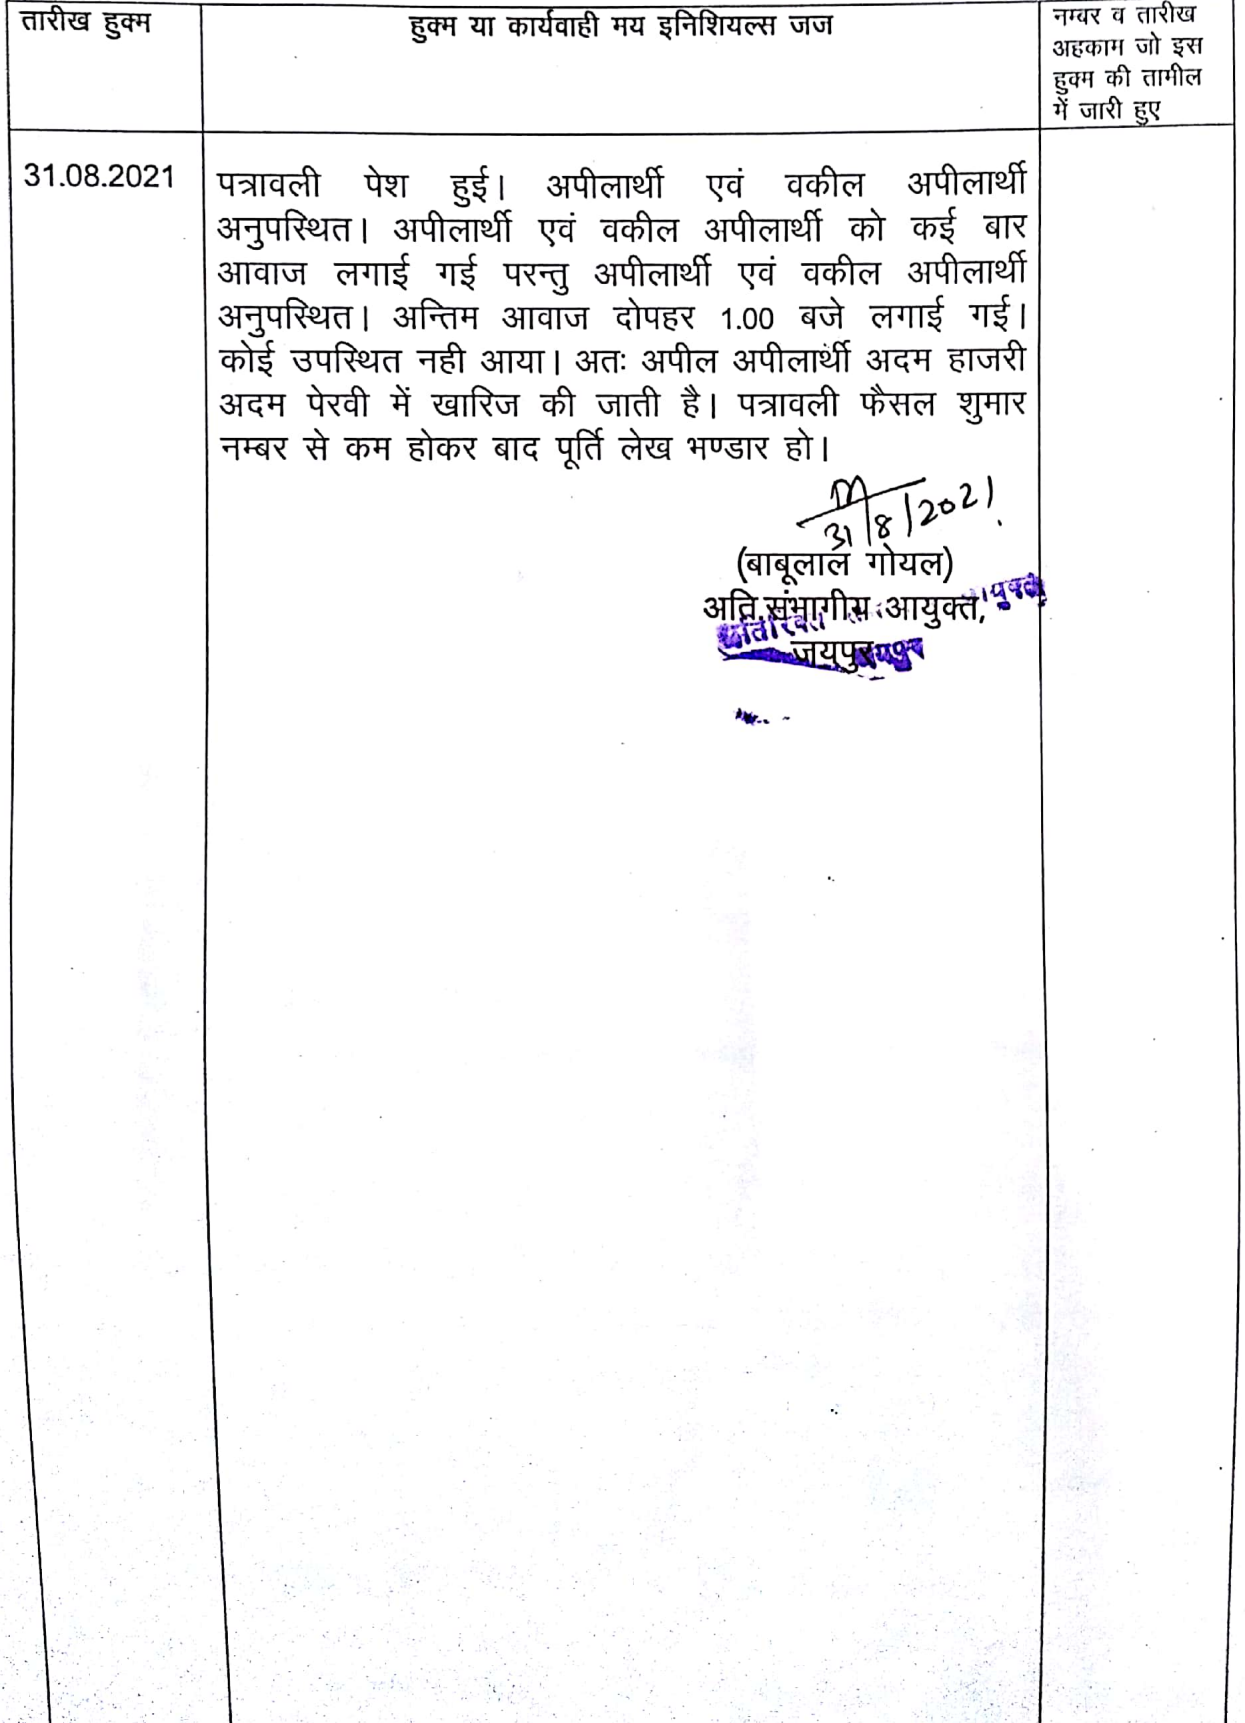 तारीख हुक्म
हुक्म या कार्यवाही मय इनिशियल्स जज
नम्बर व तारीख
अहकाम जो इस
हुक्म की तामील
में जारी हुए
31.08.2021
पत्रावली पेश हुई। अपीलार्थी एवं वकील अपीलार्थी
अनुपस्थित। अपीलार्थी एवं वकील अपीलार्थी को कई बार
आवाज लगाई गई परन्तु अपीलार्थी एवं वकील अपीलार्थी
अनुपस्थित। अन्तिम आवाज दोपहर 1.00 बजे लगाई गई।
कोई उपस्थित नही आया। अतः अपील अपीलार्थी अदम हाजरी
अदम पेरवी में खारिज की जाती है। पत्रावली फैसल शुमार
नम्बर से कम होकर बाद पूर्ति लेख भण्डार हो।
31/8/2021
(बाबूलाल गोयल)
अति.संभागीय आयुक्त,
जयपुर